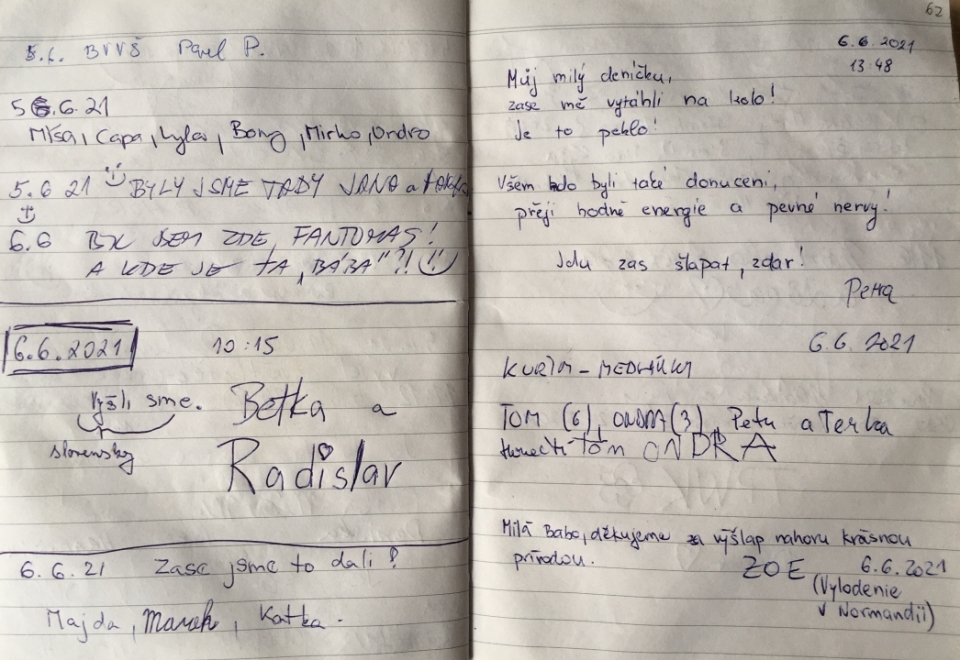 5.6. BVVŠ Pavel P.
5.6.21
Míša, Capa, , Bony, Mirko, Ondro
5.6 21 BYLY JSME TADY JANA a
6.6 BYL JSEM ZDE, FANTOMAS!
A KDE JE TA „BÁBA"?!
6.6.2021 10:15
Vyšli sme. Betka a
slovensky Radislav
6.6.21 Zase jsme to dali!
Majda, Marek, Katka.
62
6.6.2021
13:48
Můj milý deníčku,
zase mě vytáhli na kolo!
Je to peklo!
Všem kdo byli také donuceni,
přeji hodně energie a pevné nervy!
Jdu zas šlapat, zdar!
Petra
6.6.2021
KUŘIM - MEDLÁNKY
TOM (6), ONDRA (3), Petr a Terka
Tom ONDRA
Milá Babo, děkujeme za výšlap nahoru krásnou
prírodou. ZOE 6.6.2021
(Vylodenie
v Normandii)